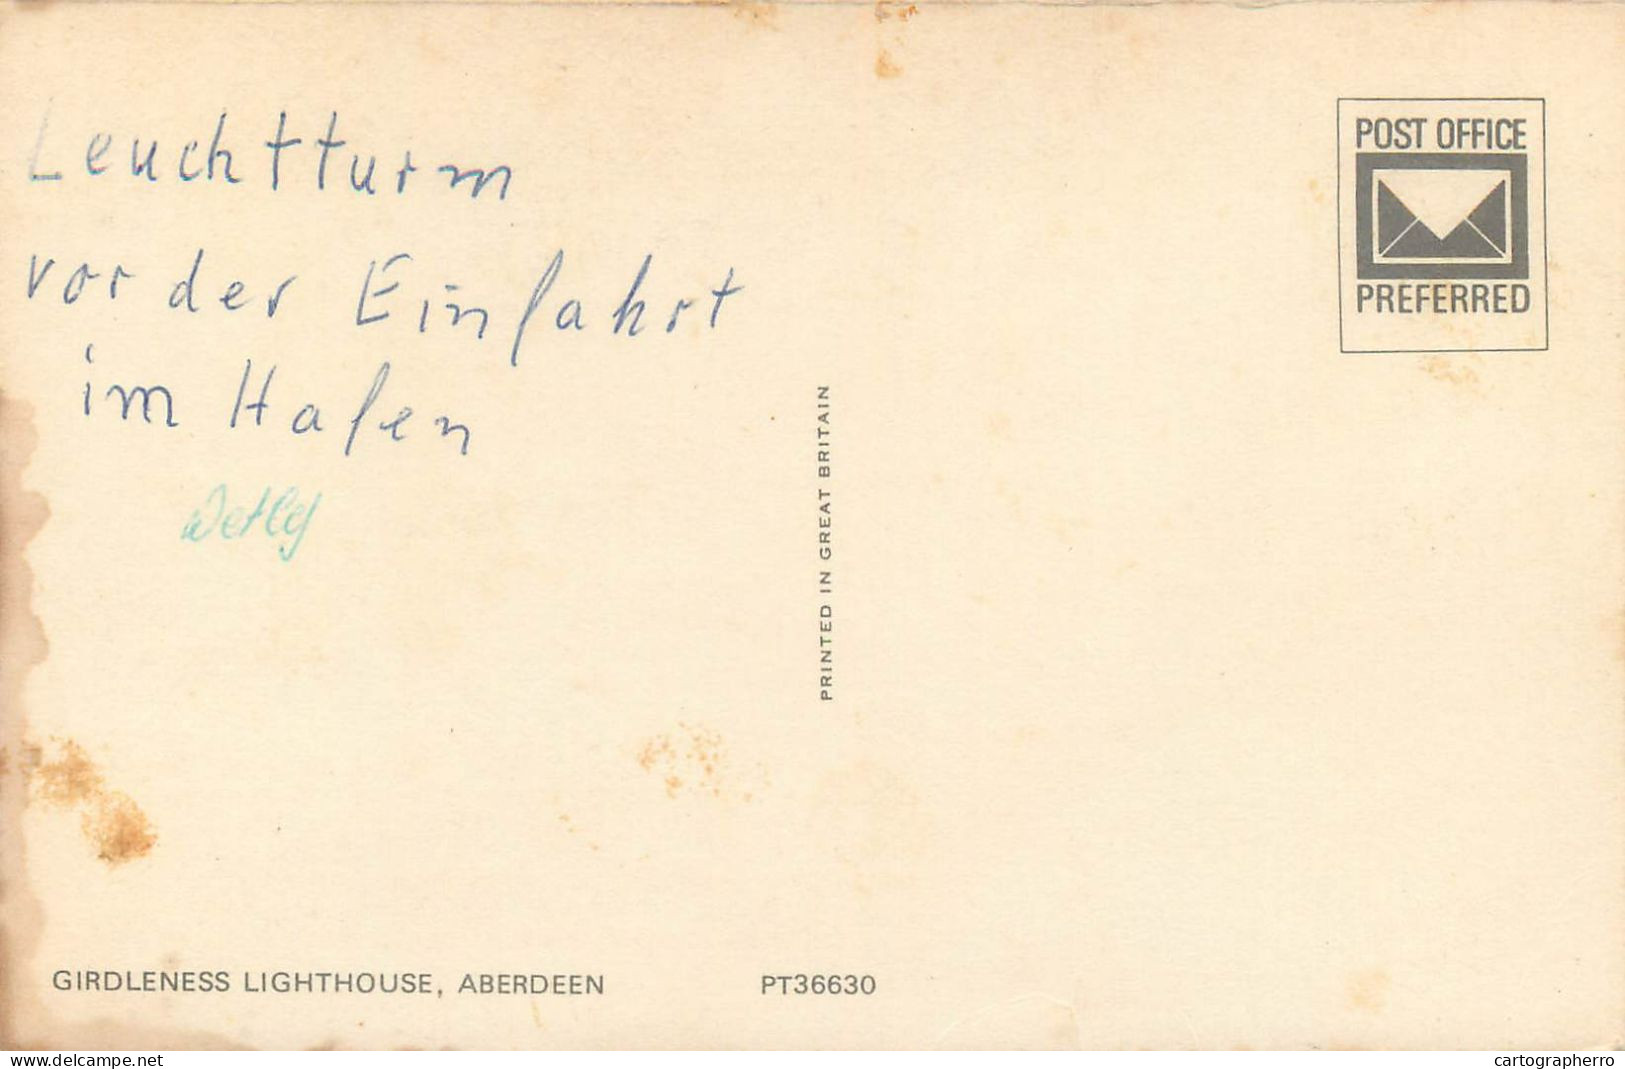 Leuchtturm
vor der Einfahrt
im Hafen
POST OFFICE
PREFERRED
PRINTED IN GREAT BRITAIN
GIRDLENESS LIGHTHOUSE, ABERDEEN
PT36630
delcampe.net
cartographerro